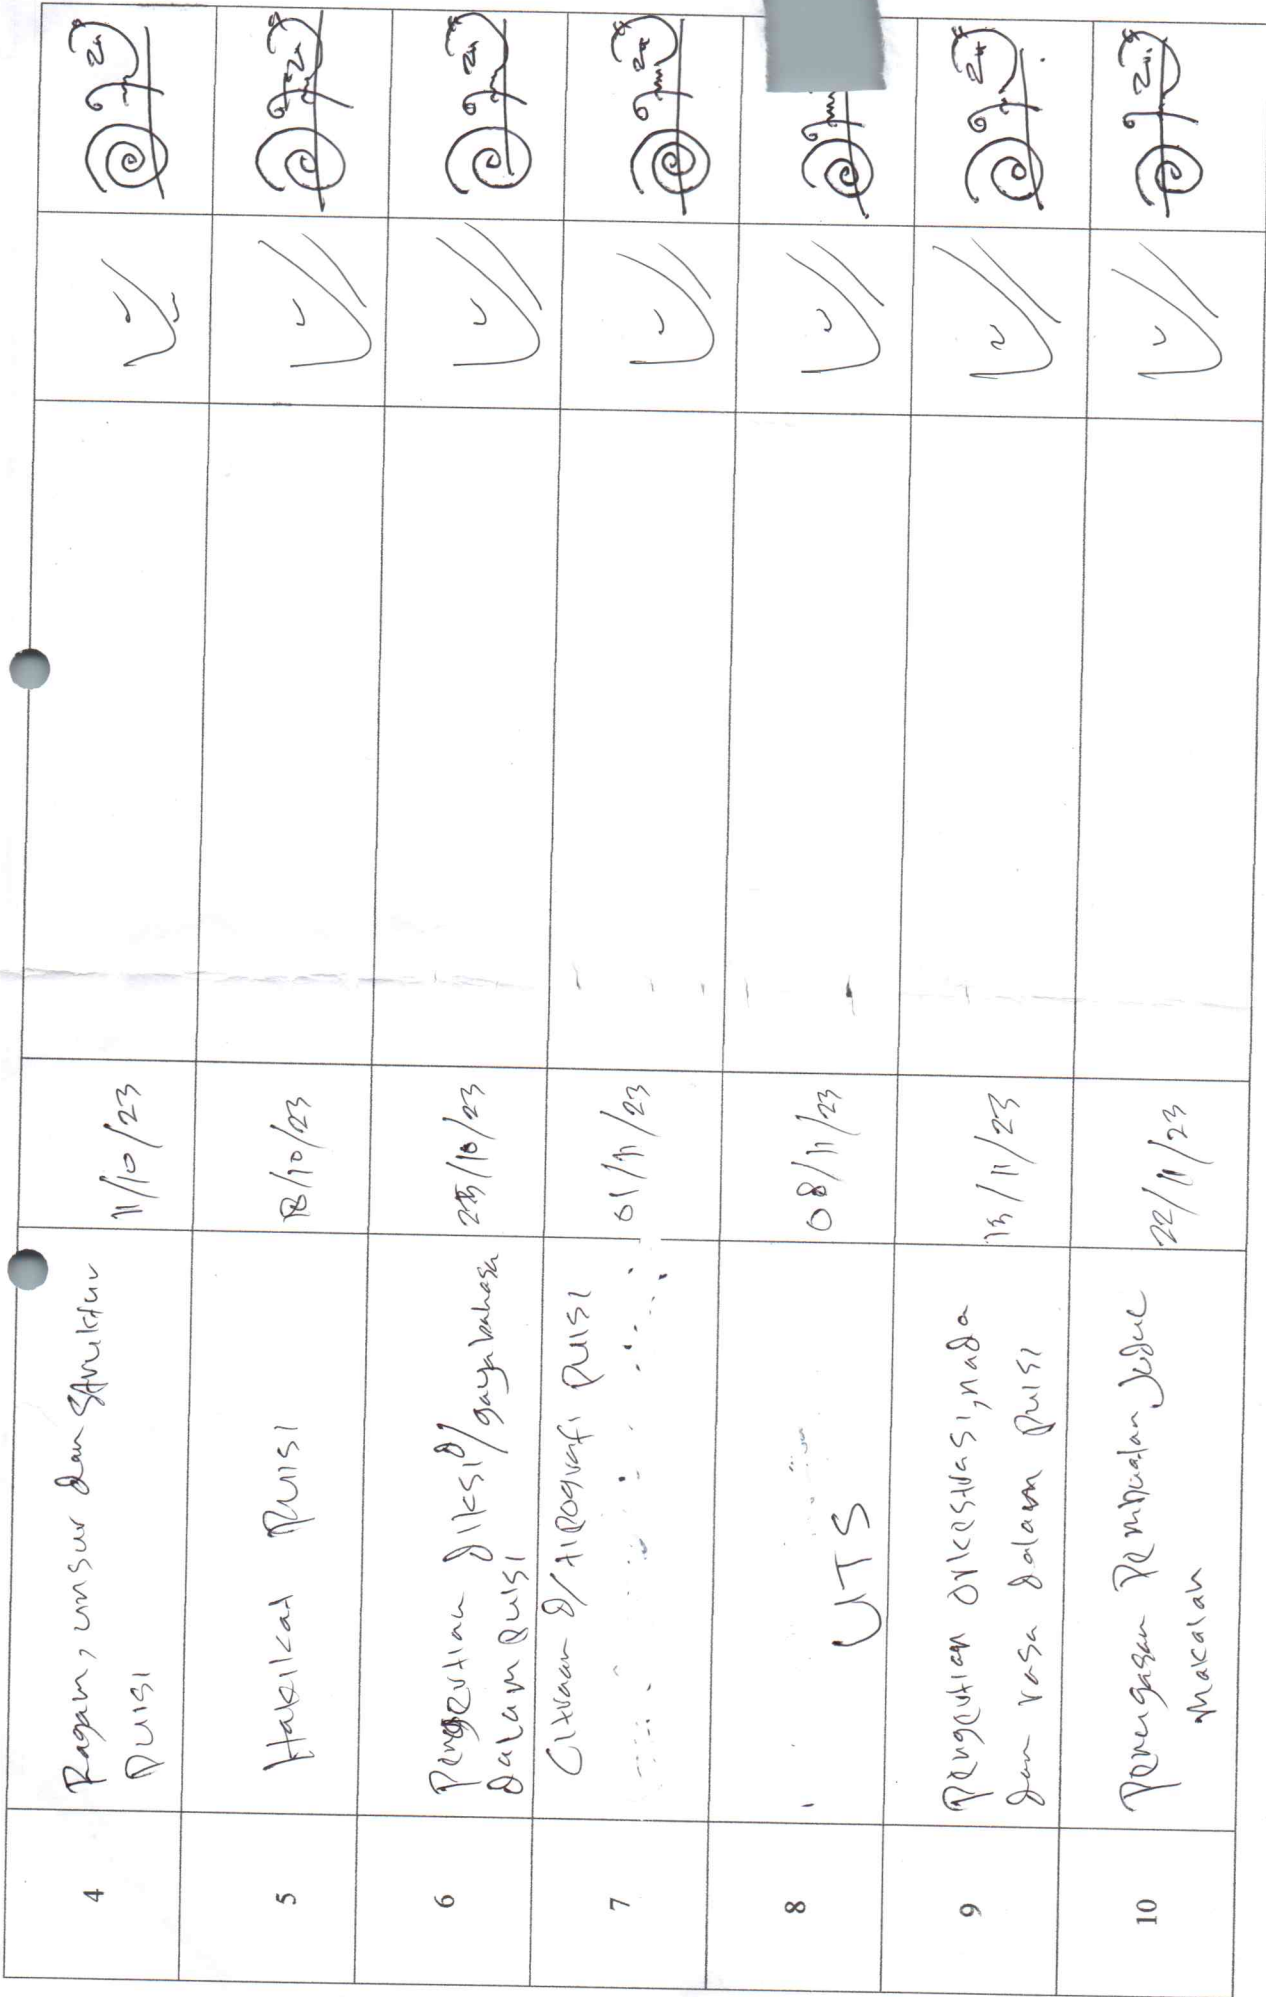 4
Ragam, unsur dan struktur
puisi
11/10/23
5
Hakikat puisi
18/10/23
6
Pengertian diksi / gaya bahasa
dalam puisi
25/10/23
7
Citraan & tipografi puisi
01/11/23
8
UTS
08/11/23
9
Pengertian orkestrasi, nada
dan rasa dalam puisi
15/11/23
10
Penugasan Pembuatan Judul
Makalah
22/11/23